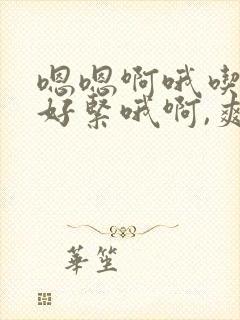 嗯嗯啊哦喫
好緊哦啊,爽
華笙